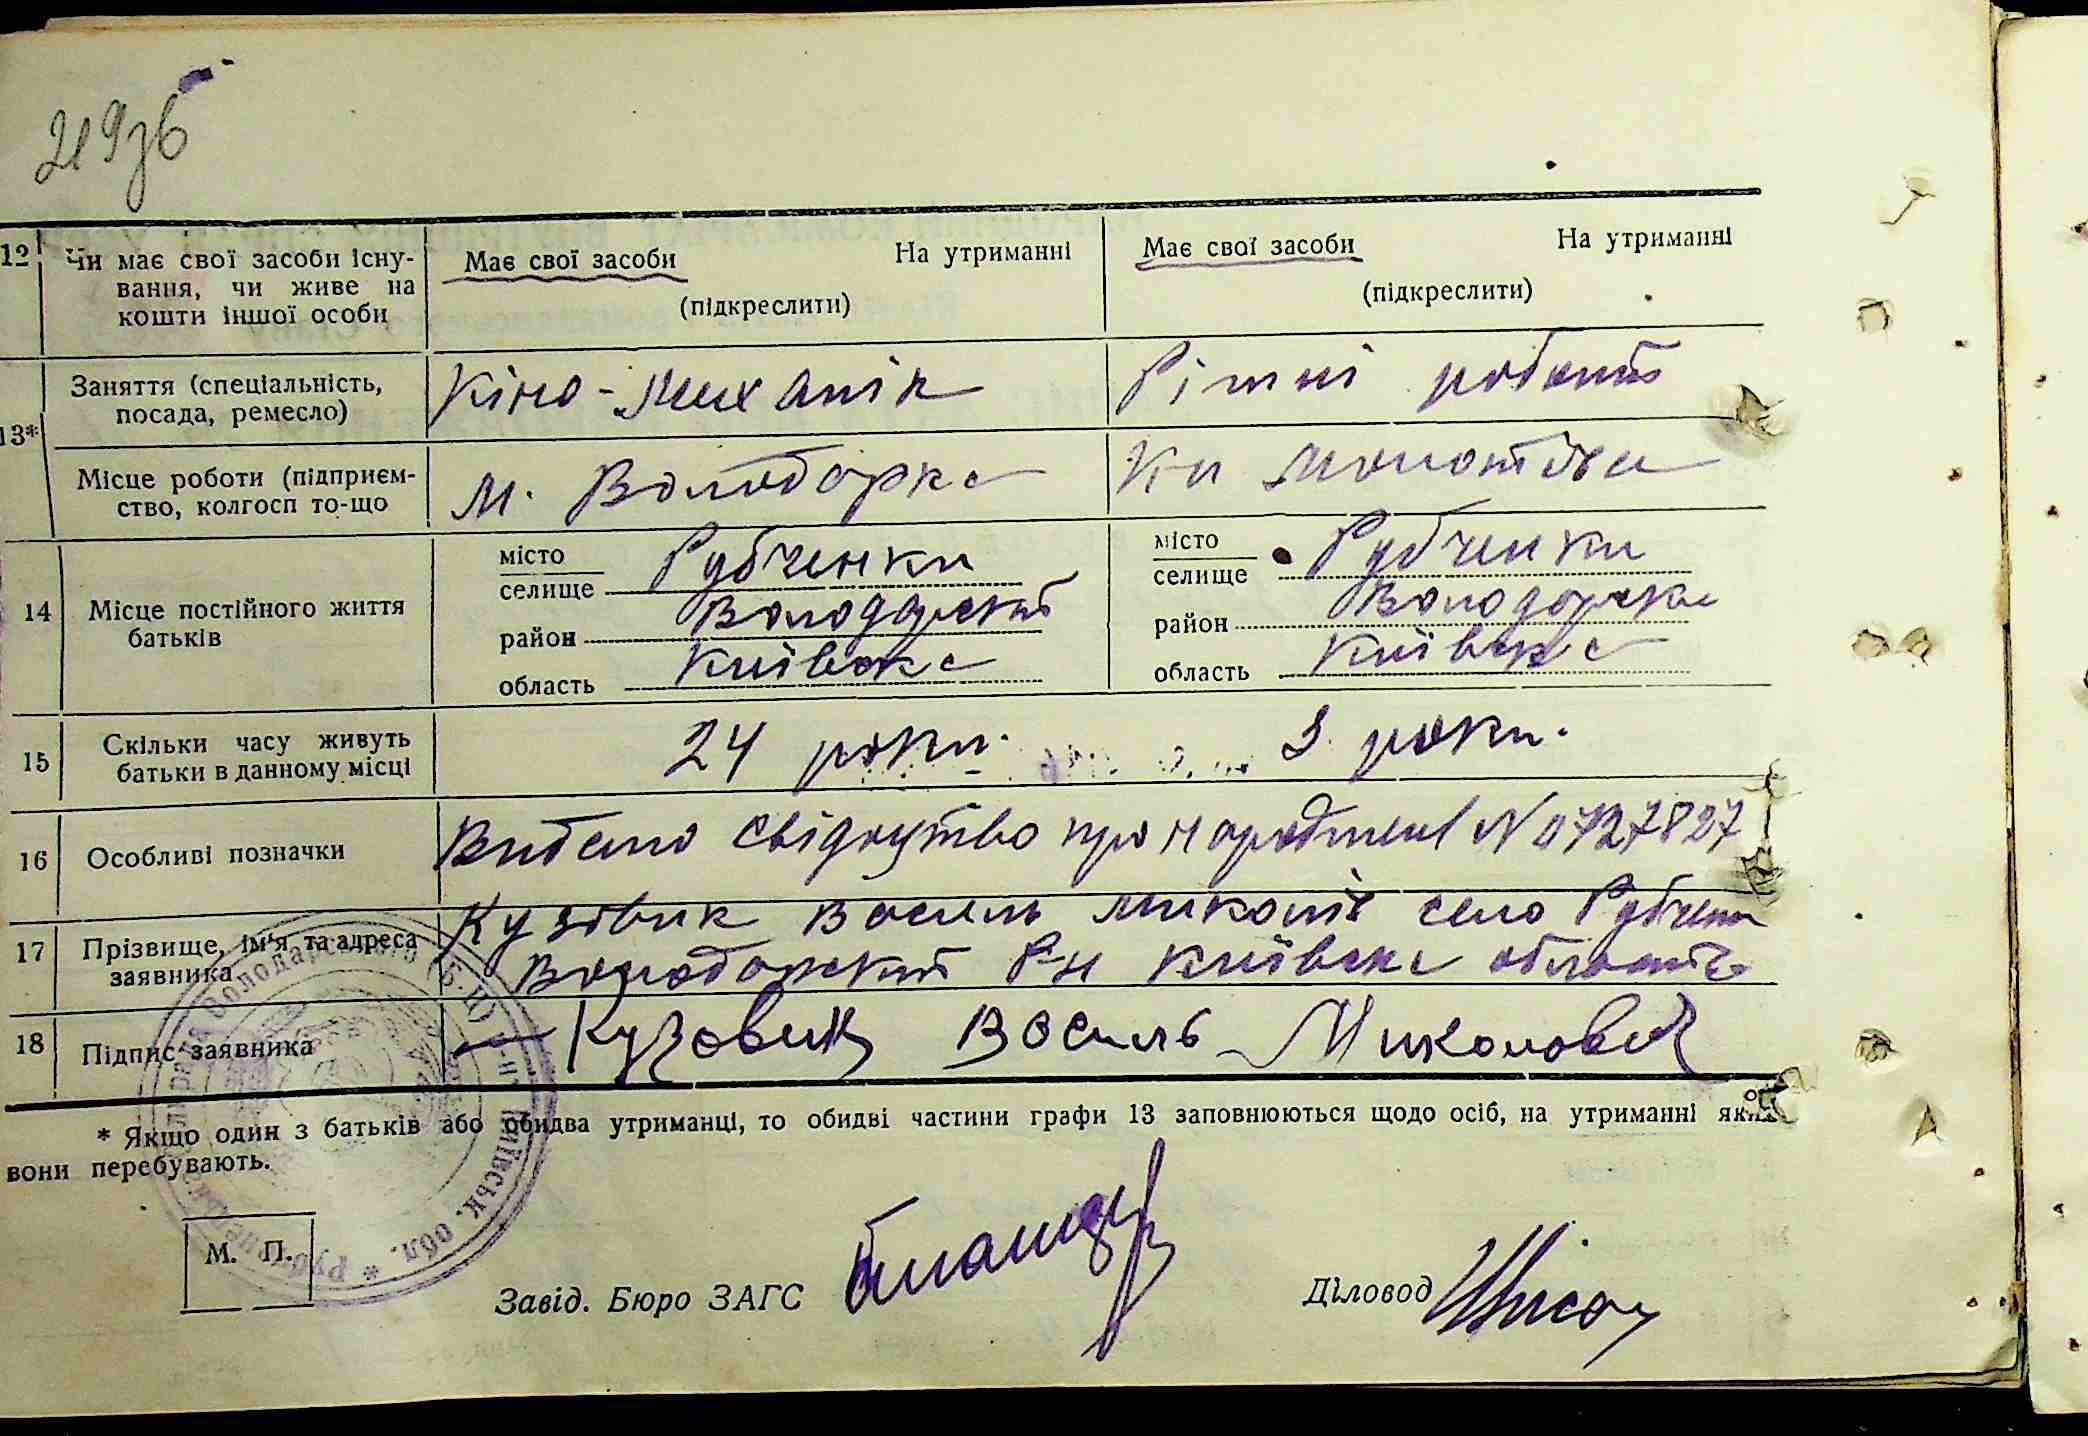 219зв
12 Чи має свої засоби існу- Має свої засоби На утриманні Має свої засоби На утриманні
вання, чи живе на (підкреслити) (підкреслити)
кошти іншої особи
Заняття (спеціальність, Кіно-механік Рітні роботи
посада, ремесло)
13*
Місце роботи (підприєм- м. Володарка Кп Молотова
ство, колгосп то-що
місто Рубченки місто Рубченки
селище селище
14 Місце постійного життя район Володарский район Володарска
батьків
область Київска область Київска
15 Скільки часу живуть 24 роки. 3 роки.
батьки в данному місці
16 Особливі позначки Видано свідоцтво про народження N 0727827
17 Прізвище, ім'я та адреса Кузовик Василь Микол село Рубченки
заявника Володарский Рн Київска область
18 Підпис заявника Кузовик Василь Миколович
* Якщо один з батьків або обидва утриманці, то обидві частини графи 13 заповнюються щодо осіб, на утриманні яких
вони перебувають.
М. П.
Завід. Бюро ЗАГС Діловод
Володарського Київськ. обл. *